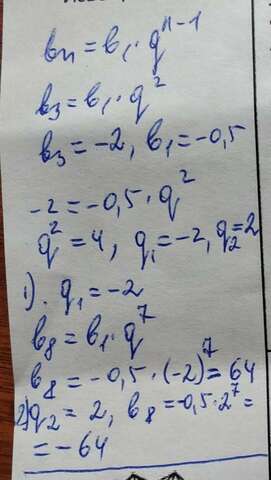 bn = b₁ · qⁿ⁻¹
b₃ = b₁ · q²
b₃ = -2, b₁ = -0,5
-2 = -0,5 · q²
q² = 4, q₁ = -2, q₂ = 2
1). q₁ = -2
b₈ = b₁ · q⁷
b₈ = -0,5 · (-2)⁷ = 64
2) q₂ = 2, b₈ = -0,5 · 2⁷ =
= -64